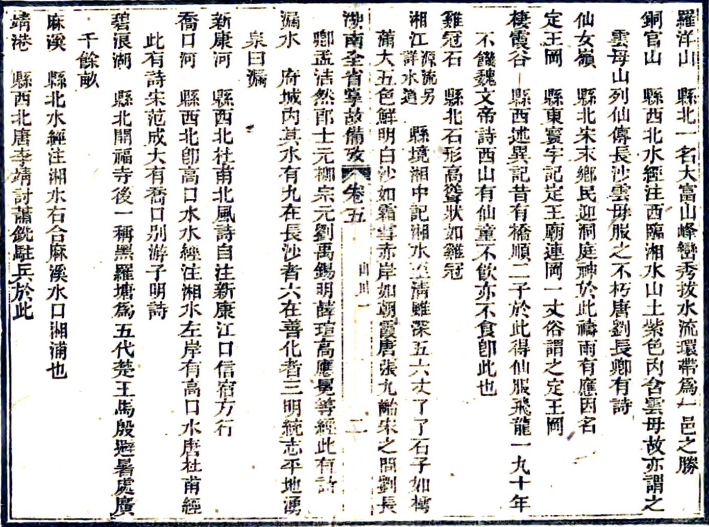 羅洋山　縣北一名大富山峰巒秀拔水流環帶爲一邑之勝
銅官山　縣西北水經注西臨湘水山土紫色內含雲母故亦謂之
雲母山列仙傳長沙雲母服之不朽唐劉長卿有詩
仙女嶺　縣北宋末鄉民迎洞庭神於此禱雨有應因名
定王岡　縣東寰宇記定王廟連岡一丈俗謂之定王岡
棲霞谷　縣西述異記昔有橋順二子於此得仙服飛龍一九十年
不饑魏文帝詩西山有仙童不飲亦不食卽此也
雞冠石　縣北石形高聳狀如雞冠
湘江　源流另詳水道　縣境湘中記湘水至清雖深五六丈了了石子如樗
蒲大五色鮮明白沙如霜雪赤岸如朝霞唐張九齡宋之問劉長
湖南全省掌故備攷　卷五　山川一　二
卿孟浩然郎士元柳宗元劉禹錫明薛瑄高應冕等經此有詩
漏水　府城內其水有九在長沙者六在善化者三明統志平地湧
泉曰漏
新康河　縣西北杜甫北風詩自注新康江口信宿方行
喬口河　縣西北卽高口水水經注湘水左岸有高口水唐杜甫經
此有詩宋范成大有喬口別游子明詩
碧浪湖　縣北開福寺後一稱黑羅塘爲五代楚王馬殷避暑處廣
千餘畝
麻溪　縣北水經注湘水右合麻溪水口湘浦也
靖港　縣西北唐李靖討蕭銑駐兵於此